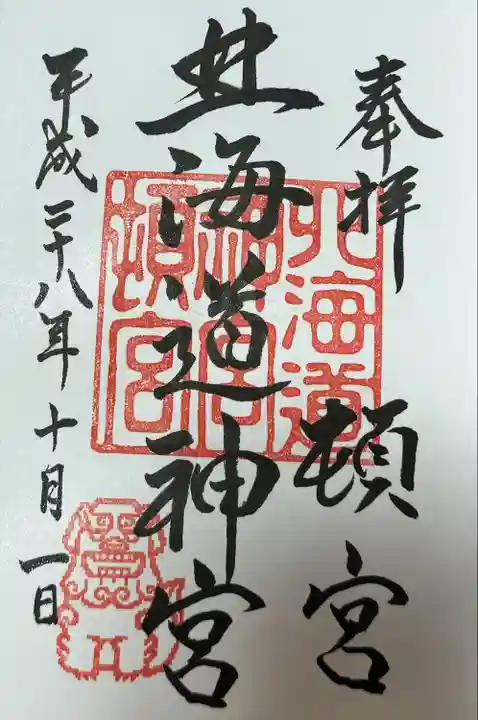 奉拝
頓宮
北海道神宮
北海道
神宮
頓宮
平成二十八年十月一日